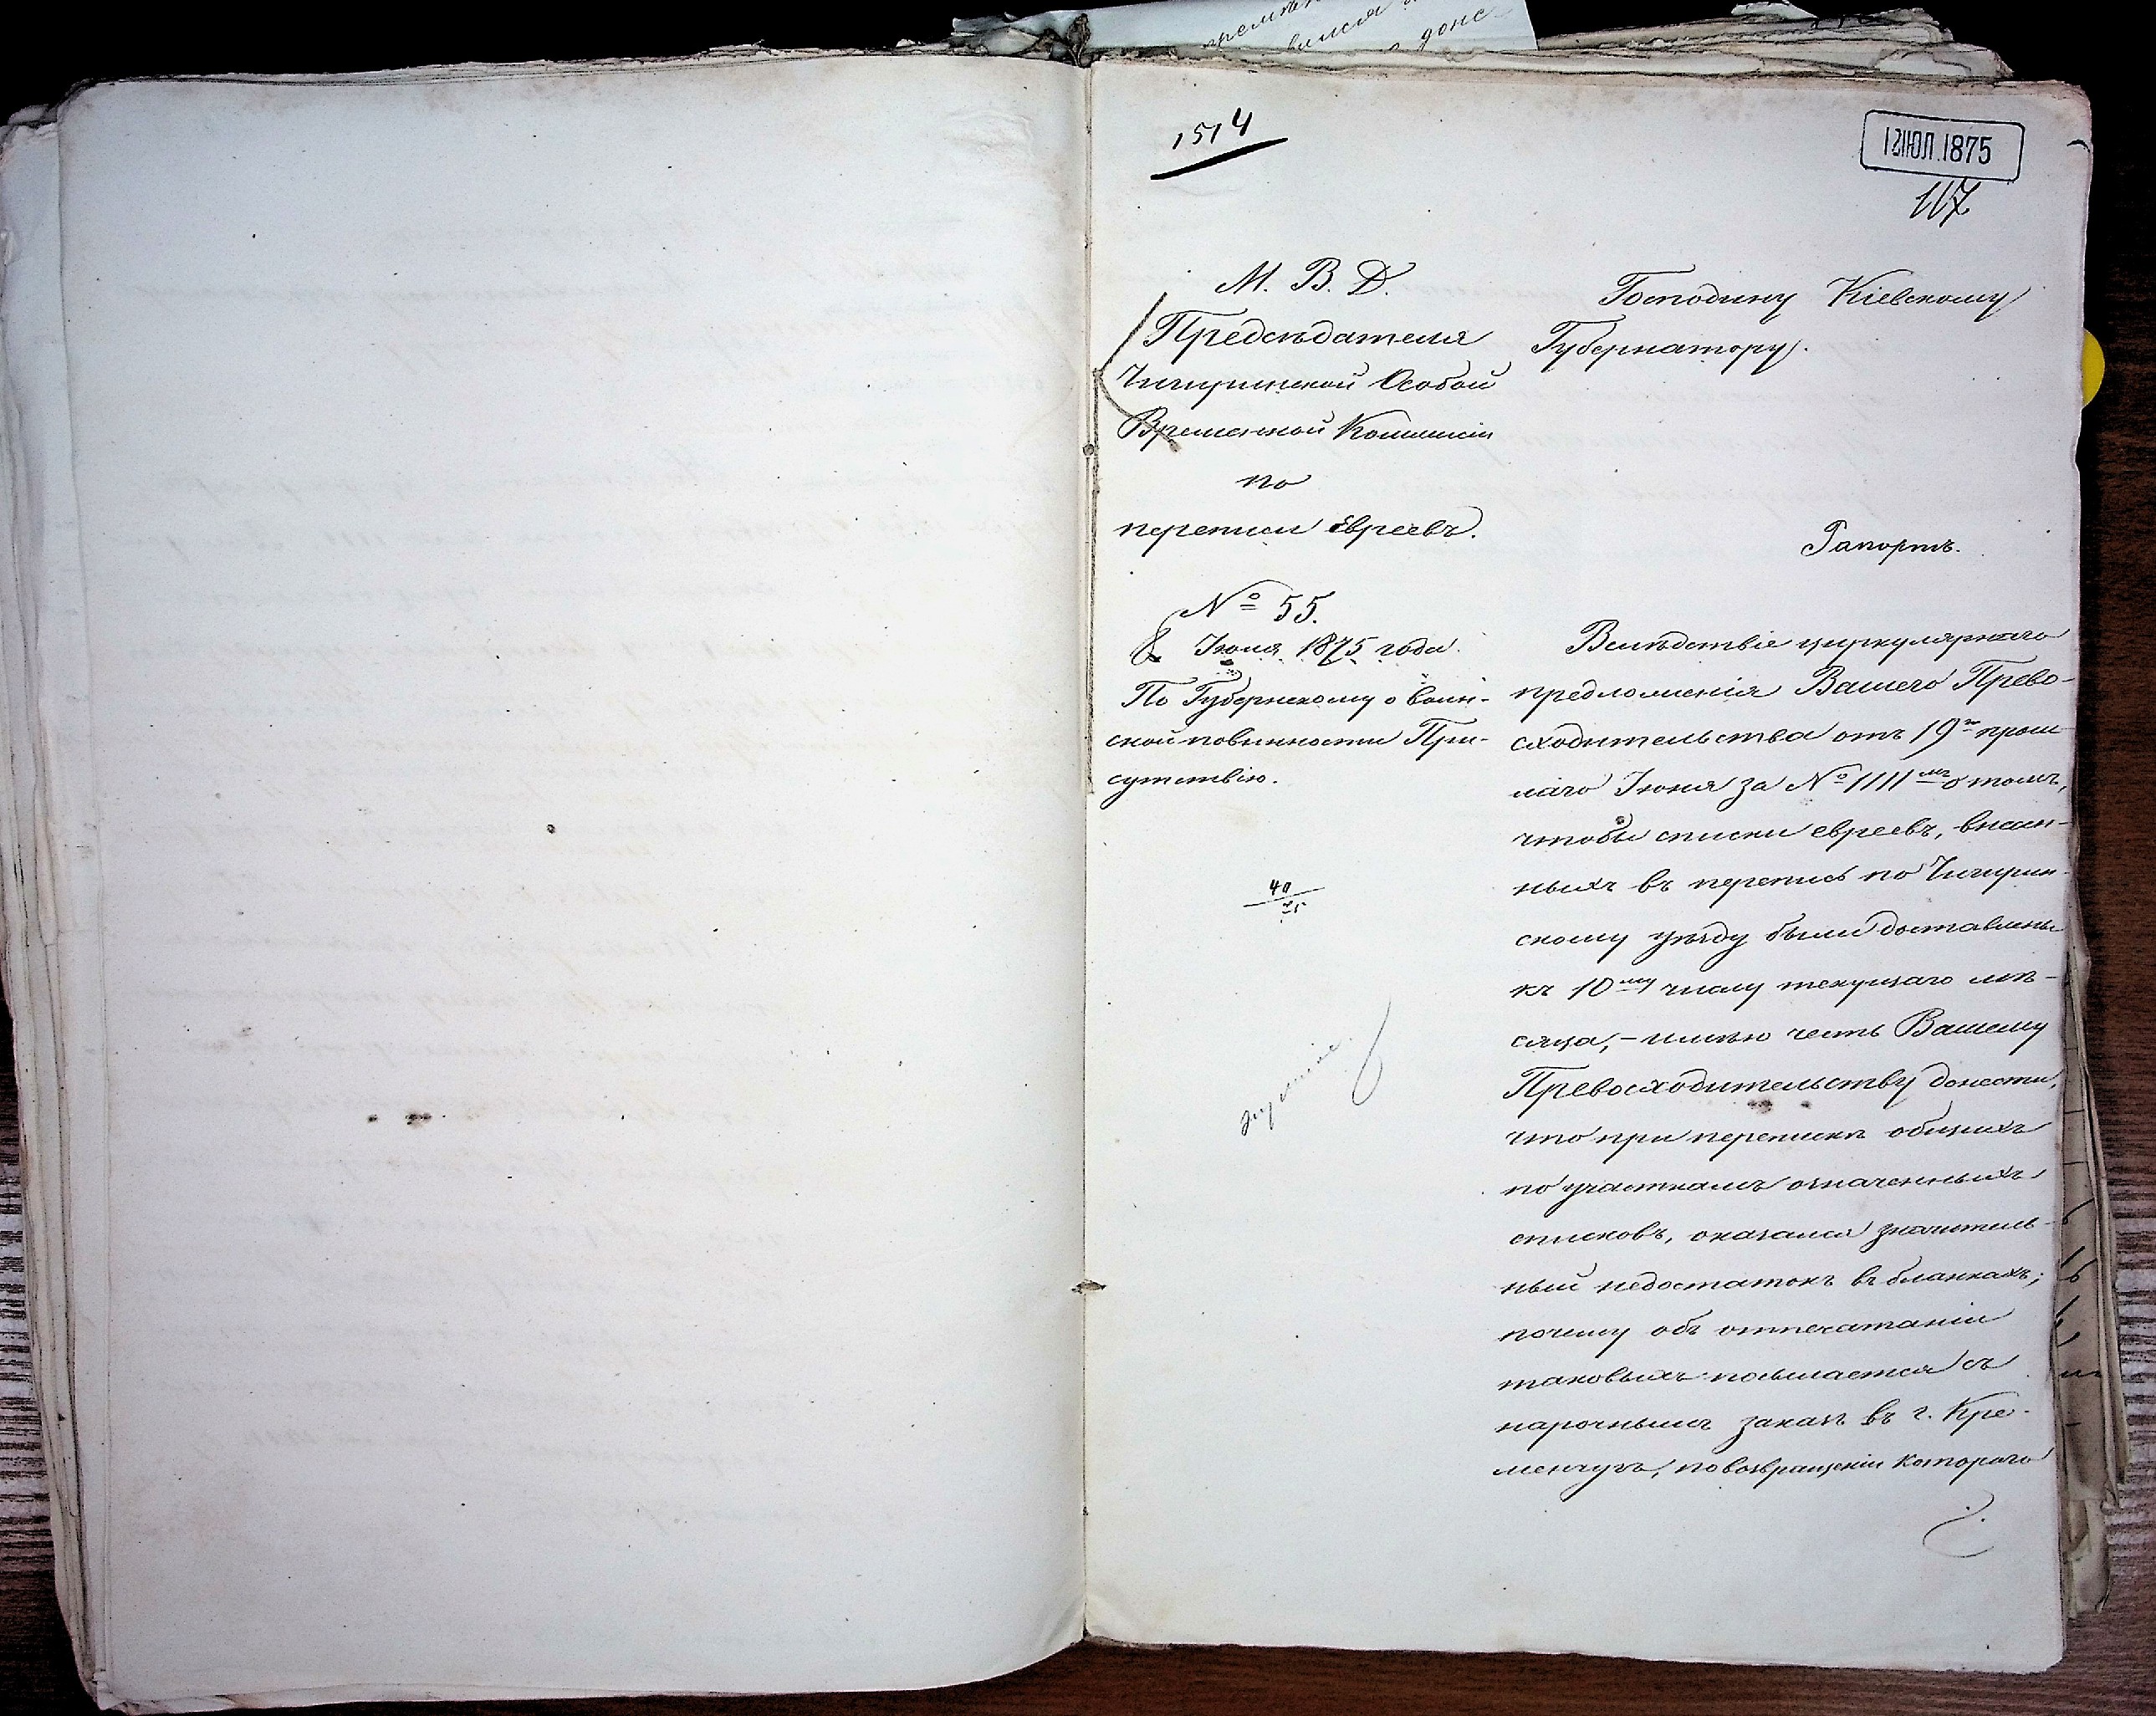 1514
12 ІЮЛ. 1875
117
М. В. Д.
Предсѣдателя
Чигиринской Особой
Временной Коммисіи
по
переписи Евреевъ.
№ 55.
8 Іюля 1875 года.
По Губернскому о воин-
ской повинности При-
сутствію.
Господину Кіевскому
Губернатору.
Рапортъ.
Вслѣдствіе циркулярнаго
предложенія Вашего Прево-
сходительства отъ 19го прош
лаго Іюня за № 1111мъ о томъ,
чтобы списки евреевъ, внесен-
ныхъ въ перепись по Чигирин-
скому уѣзду были доставлены
къ 10му числу текущаго мѣ-
сяца, - имѣю честь Вашему
Превосходительству донести,
что при перепискѣ общихъ
по участкамъ означенныхъ
списковъ, оказался значитель-
ный недостатокъ въ бланкахъ;
почему объ отпечатаніи
таковыхъ посылается съ
нарочнымъ заказъ въ г. Кре-
менчугъ, по возвращеніи котораго